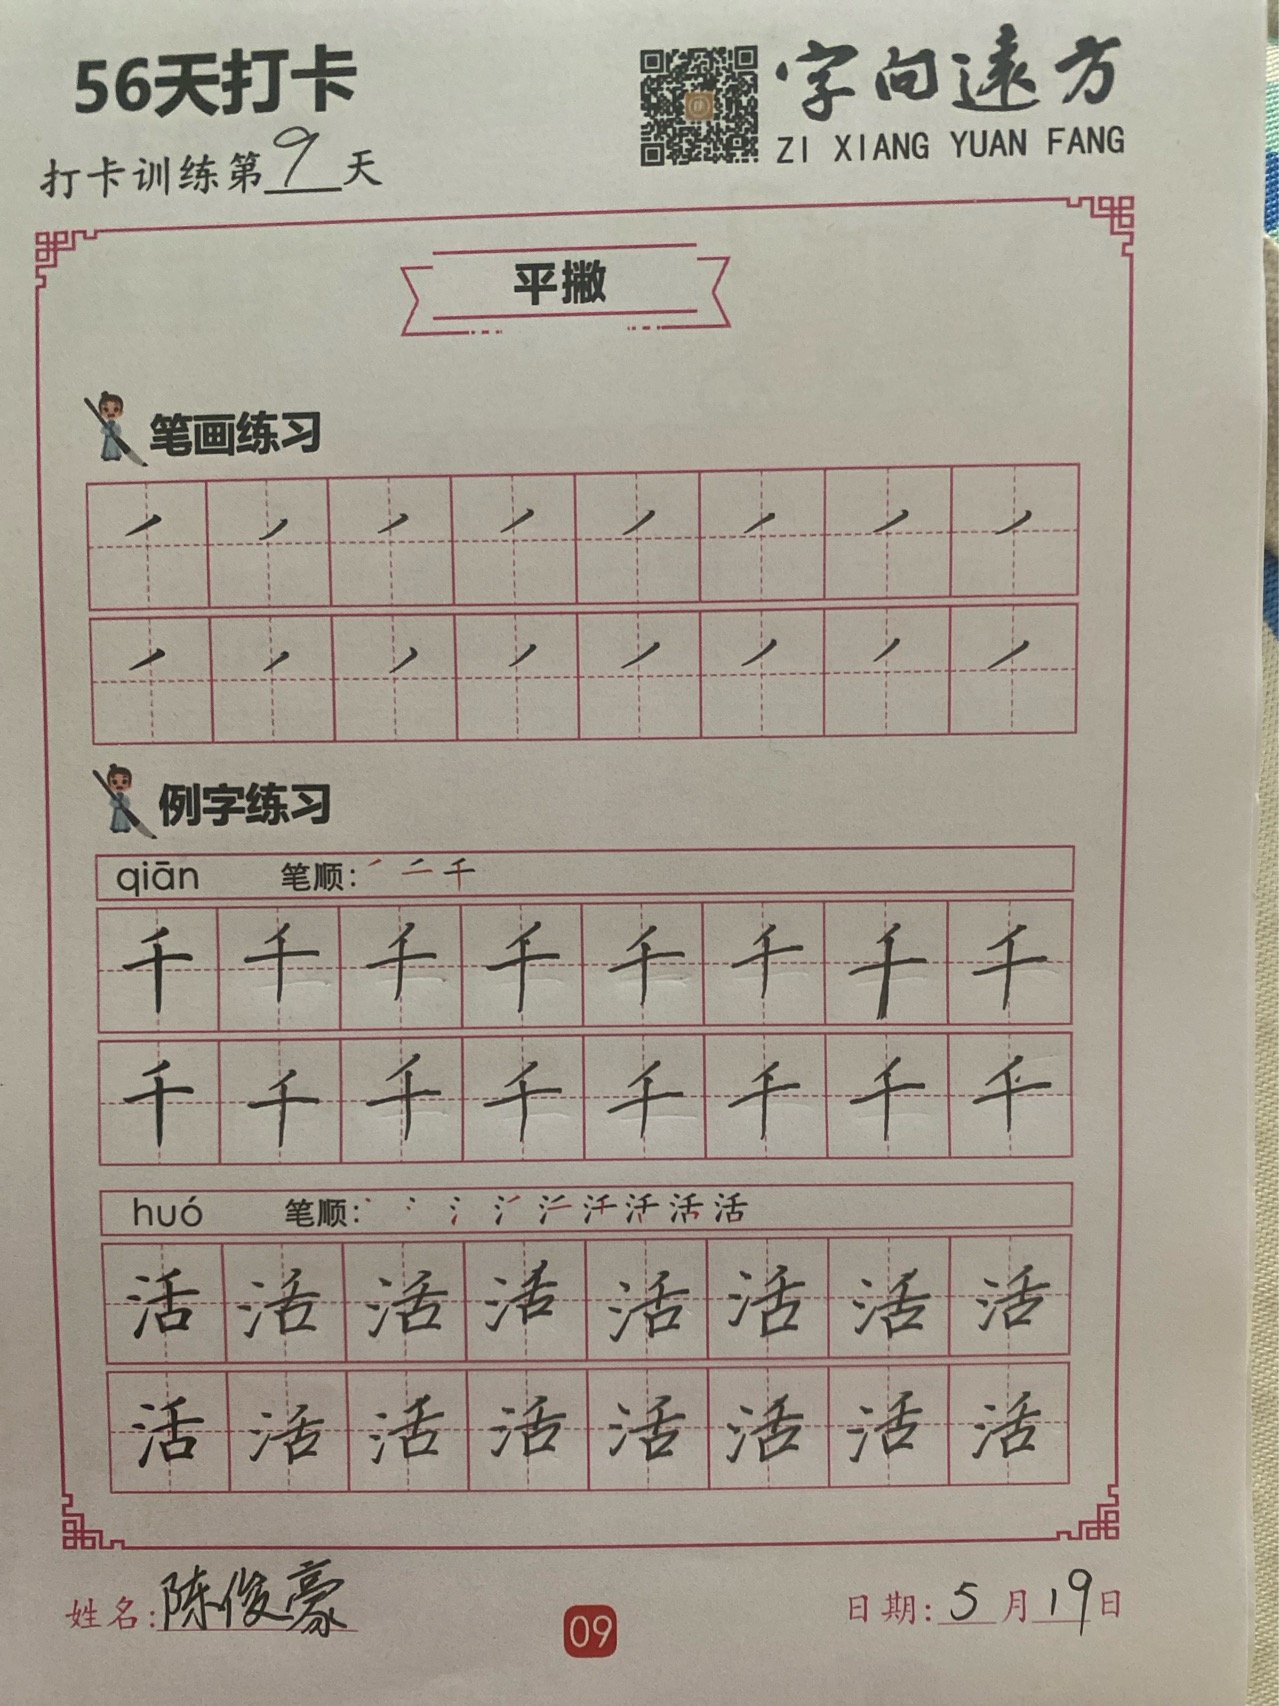 56天打卡
字向遠方
ZI XIANG YUAN FANG
打卡训练第9天
平撇
笔画练习
㇒ ㇒ ㇒ ㇒ ㇒ ㇒ ㇒ ㇒
㇒ ㇒ ㇒ ㇒ ㇒ ㇒ ㇒ ㇒
例字练习
qiān 笔顺: ㇒ 二 千
千 千 千 千 千 千 千 千
千 千 千 千 千 千 千 千
huó 笔顺: 活
活 活 活 活 活 活 活 活
活 活 活 活 活 活 活 活
姓名:陈俊豪
09
日期:5月19日